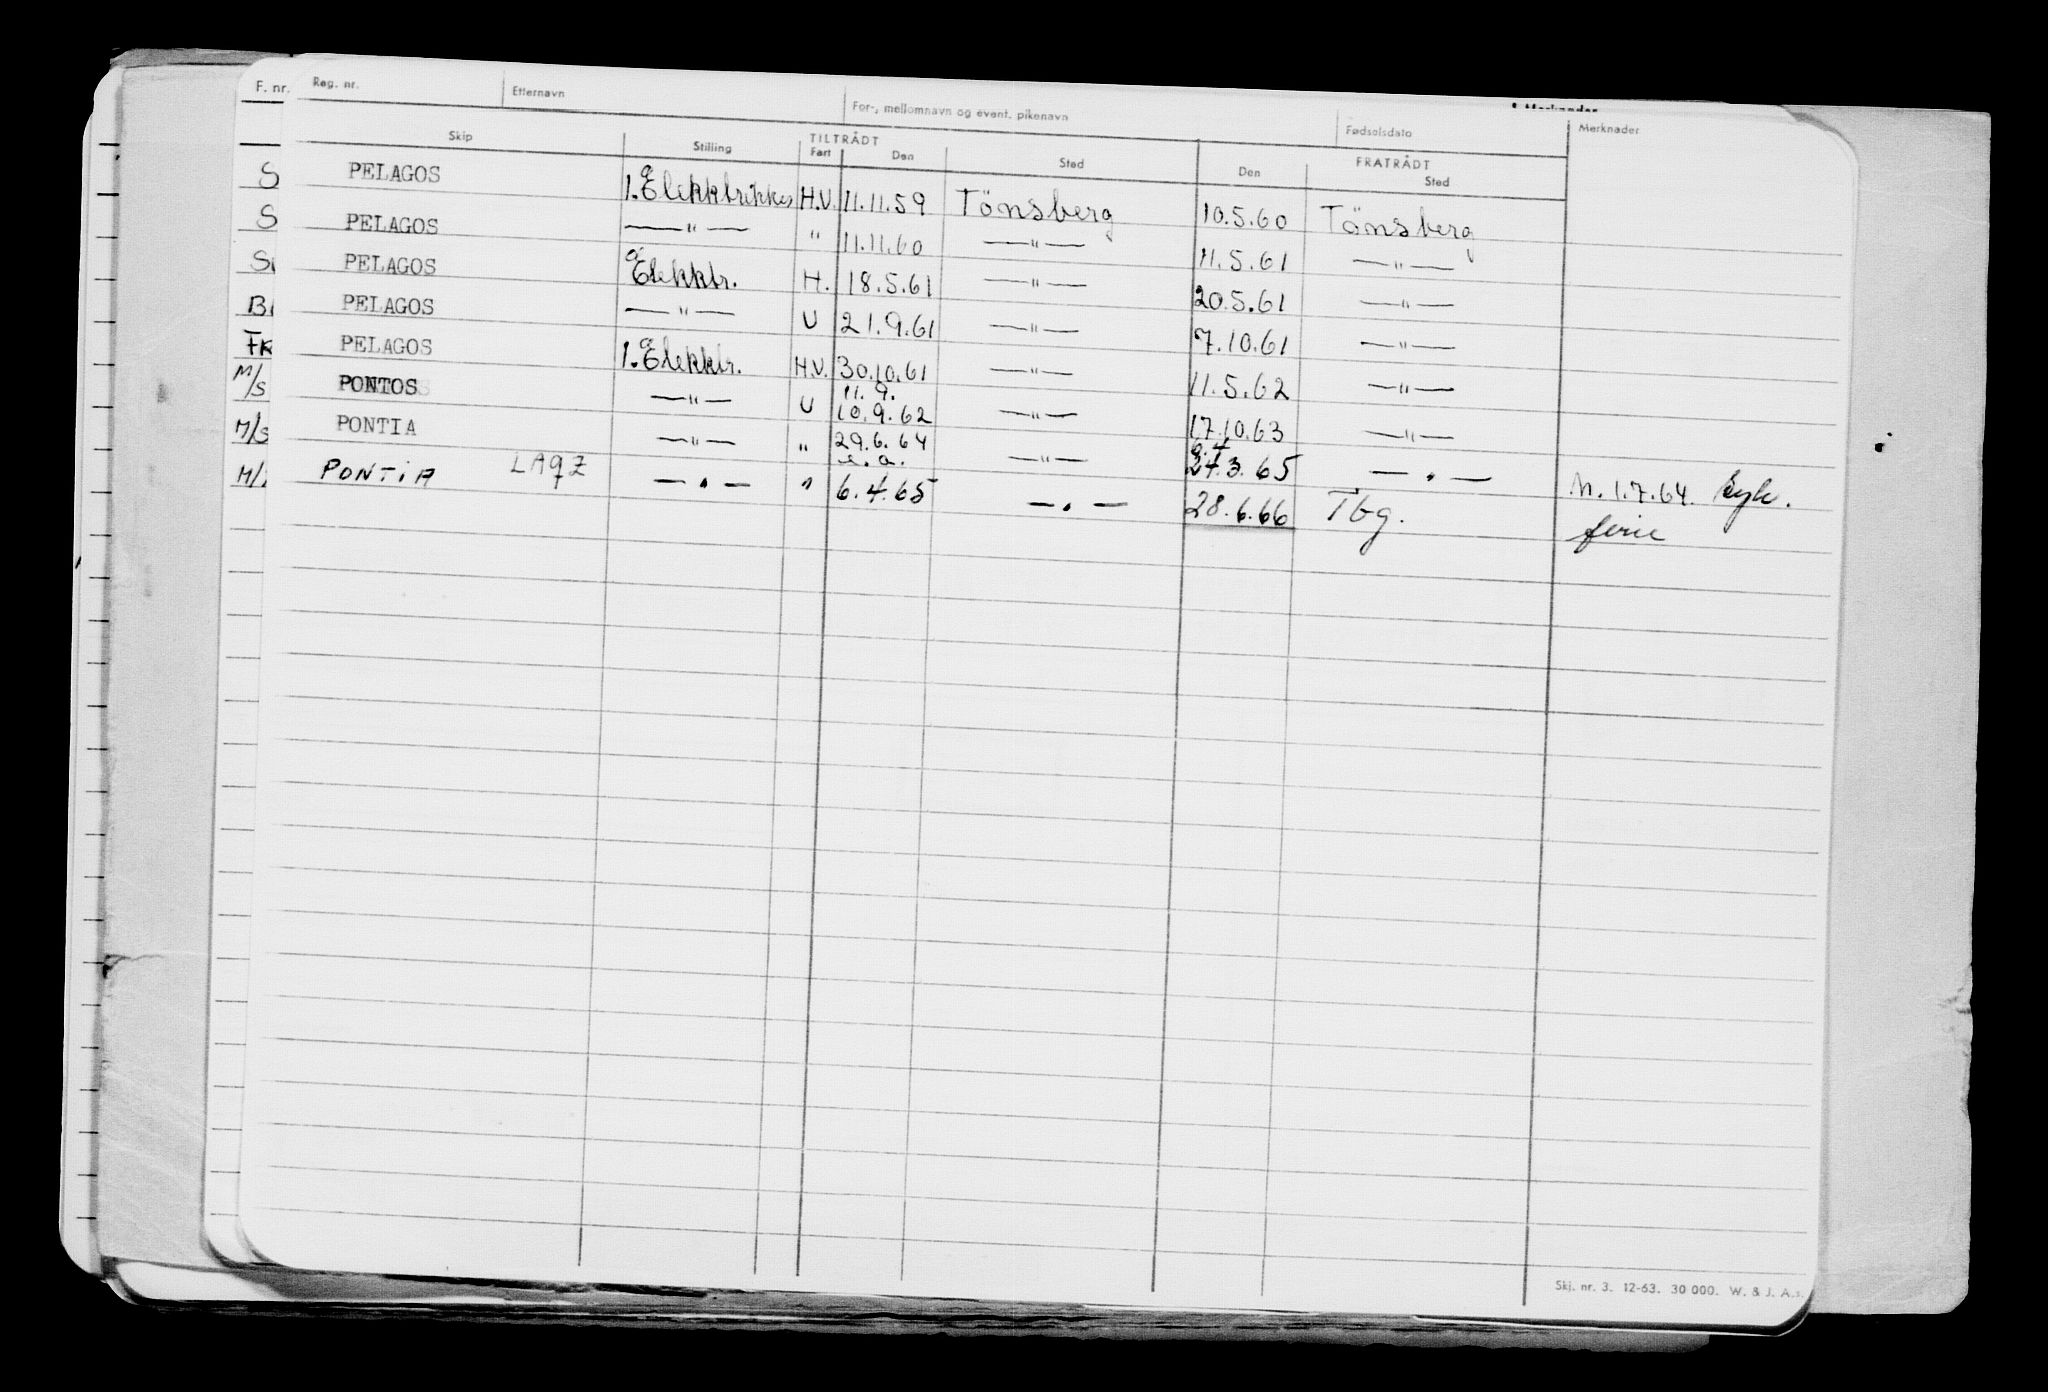 F. nr. Reg. nr. Etternavn For-, mellomnavn og event. pikenavn Fødselsdato Merknader
Skip Stilling TILTRÅDT FRATRÅDT
Fart Den Sted Den Sted
S PELAGOS 1. Elekktrikker H.V. 11.11.59 Tönsberg 10.5.60 Tönsberg
S PELAGOS —"— " 11.11.60 —"— 11.5.61 —"—
S PELAGOS Elekktr. H. 18.5.61 —"— 20.5.61 —"—
B PELAGOS —"— U 21.9.61 —"— 7.10.61 —"—
FK PELAGOS 1. Elekktr. H.V. 30.10.61 —"— 11.5.62 —"—
11.9.
M/S PONTOS —"— U 10.9.62 —"— 17.10.63 —"—
M/S PONTIA —"— " 29.6.64 —"— 24.3.65 —.—
M/ PONTIA LAQZ —.— " 6.4.65 —.— 28.6.66 Tbg.
M. 1.7.64.
ferie
Skj. nr. 3. 12-63. 30 000. W. & J. A.s.